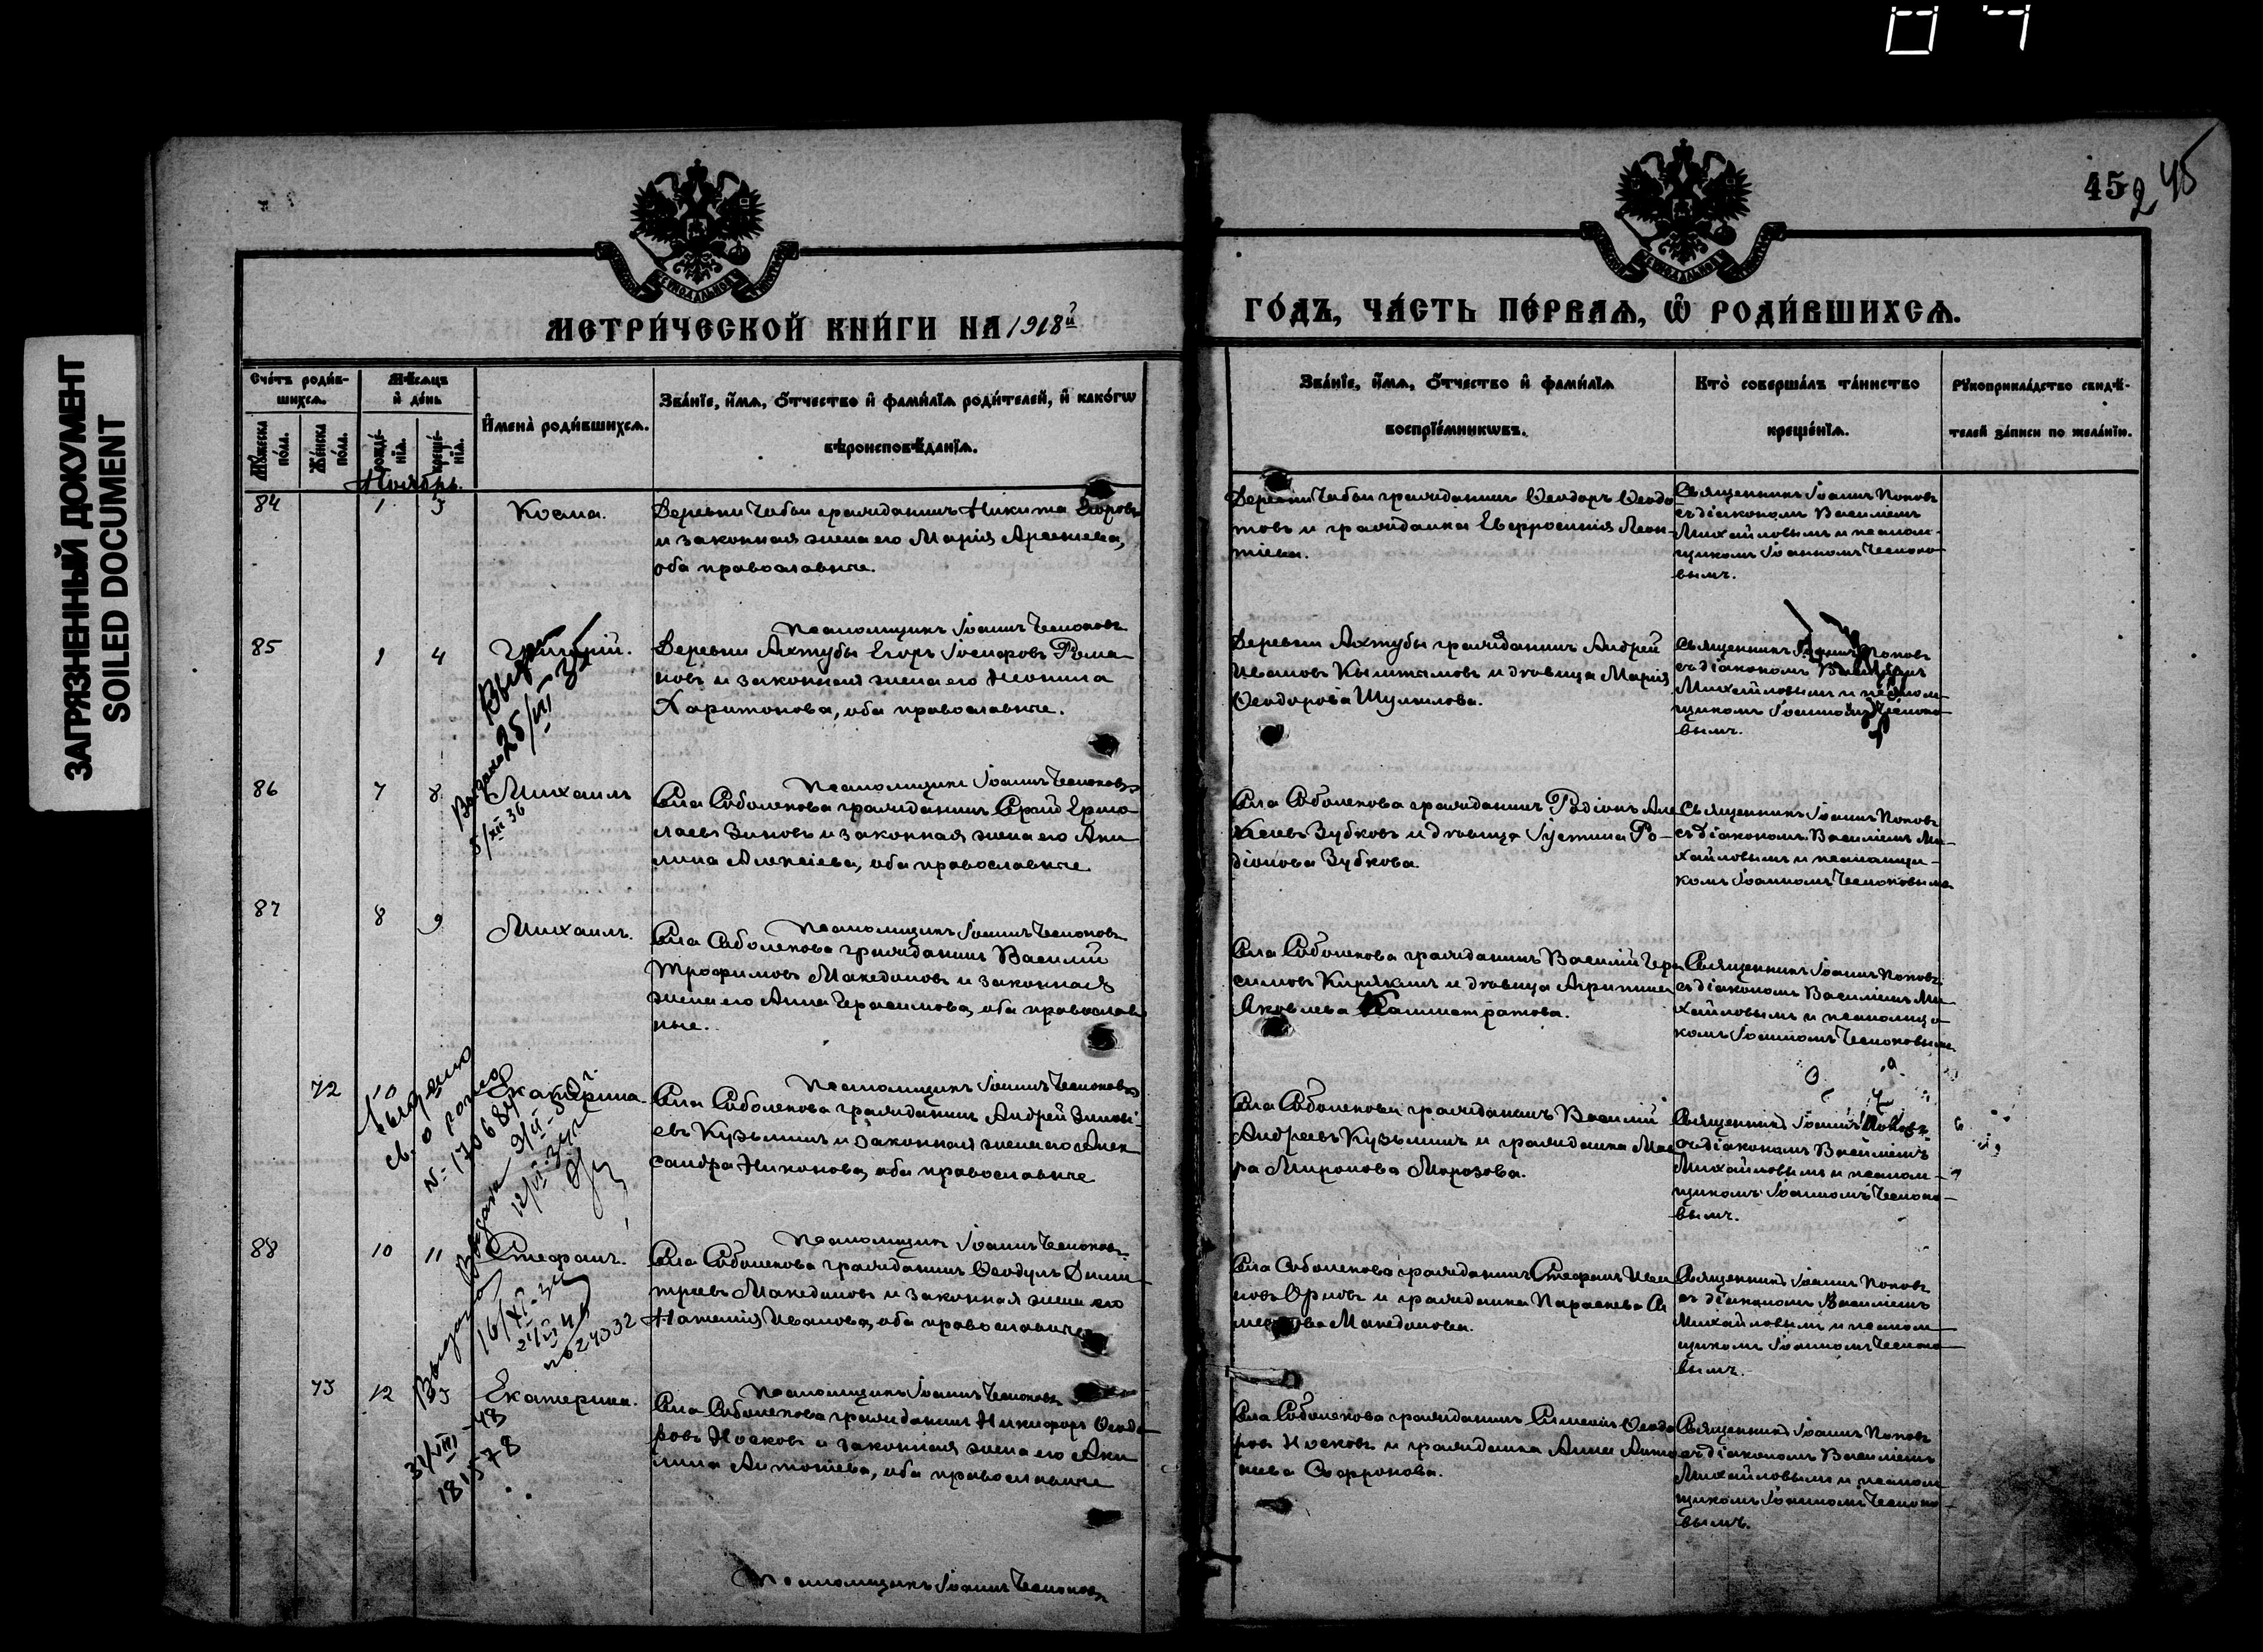 ЗАГРЯЗНЕННЫЙ ДОКУМЕНТ
SOILED DOCUMENT
45
МЕТРИ́ЧЕСКОЙ КНИ́ГИ НА 1918й
ГО́ДЪ, ЧА́СТЬ ПЕ́РВАѦ, Ѡ҆ РОДИ́ВШИХСѦ.
Сче́тъ роди́в-
шихсѧ.
Мѣ́сѧцъ
и҆ де́нь
Мꙋ́жеска
по́ла.
Же́нска
по́ла.
рожде́-
нїѧ.
креще́-
нїѧ.
И҆мена̀ роди́вшихсѧ.
Зва́нїе, и҆́мѧ, ѻ҆́тчество и҆ фамі́лїѧ роди́телей, и҆ како́гѡ
вѣроисповѣ́данїѧ.
Зва́нїе, и҆́мѧ, ѻ҆́тчество и҆ фамі́лїѧ
воспрїе́мникѡвъ.
Кто̀ соверша́лъ та́инство
креще́нїѧ.
Рꙋкоприкла́дство свидѣ́-
телей за́писи по жела́нїю.
Ноябрь.
84
1
3
Косма.
Деревни Чабьи гражданинъ Никита Егоровъ
и законная жена его Марія Арсеніева,
оба православные.
Деревни Чабьи гражданинъ Ѳеодоръ Ѳеодо
товъ и гражданка Евфросинія Леон-
тіева.
Священникъ Іоаннъ Поповъ
съ діакономъ Василіемъ
Михайловымъ и псалом-
щикомъ Іоанномъ Чесноко-
вымъ.
Псаломщикъ Іоаннъ Чесноковъ
85
1
4
Григорій.
Деревни Ахтубы Егоръ Іосифовъ Рома
новъ и законная жена его Неонила
Харитонова, оба православные.
Деревни Ахтубы гражданинъ Андрей
Ивановъ и дѣвица Марія
Ѳеодорова Шумилова.
Священникъ Іоаннъ Поповъ
съ діакономъ Василіемъ
Михайловымъ и псалом-
щикомъ Іоанномъ Чесноко-
вымъ.
25/VII
Псаломщикъ Іоаннъ Чесноковъ
86
7
8
Михаилъ
Села Соболекова гражданинъ Ермо
лаевъ Зиновъ и законная жена его Аки
лина Алексіева, оба православные.
Села Соболекова гражданинъ Родіонъ Але
ксеевъ Зубковъ и дѣвица Іустина Ро-
діонова Зубкова.
Священникъ Іоаннъ Поповъ
съ діакономъ Василіемъ Ми-
хайловымъ и псаломщи-
комъ Іоанномъ Чесноковымъ
Выдано
5/XII 36
Псаломщикъ Іоаннъ Чесноковъ
87
8
9
Михаилъ.
Села Соболекова гражданинъ Василій
Трофимовъ Македоновъ и законная
жена его Анна Герасимова, оба православ
ные.
Села Соболекова гражданинъ Василій Гера
симовъ и дѣвица Агрипина
Яковлева Калистратова.
Священникъ Іоаннъ Поповъ
съ діакономъ Василіемъ Ми-
хайловымъ и псаломщи-
комъ Іоанномъ Чесноковымъ
Псаломщикъ Іоаннъ Чесноковъ
72
10
Екатерина.
Села Соболекова гражданинъ Андрей Зинові-
евъ Кузьминъ и законная жена его Алек
сандра Никонова, оба православные
Села Соболекова гражданинъ Василій
Андреевъ Кузьминъ и гражданка Мав
ра Миронова Морозова.
Священникъ Іоаннъ Поповъ
съ діакономъ Василіемъ
Михайловымъ и псалом-
щикомъ Іоанномъ Чесноко-
вымъ.
Выдано
св. о рожд
Псаломщикъ Іоаннъ Чесноковъ
88
10
11
Стефанъ.
Села Соболекова гражданинъ Ѳеодулъ Дими
тріевъ Македоновъ и законная жена его
Наталія Иванова, оба православные
Села Соболекова гражданинъ Стефанъ Ива
новъ Орловъ и гражданка Параскева
Македонова.
Священникъ Іоаннъ Поповъ
съ діакономъ Василіемъ
Михайловымъ и псалом-
щикомъ Іоанномъ Чесноко-
вымъ.
Выдано
16/XI-34
№ 24332
Псаломщикъ Іоаннъ Чесноковъ
73
12
13
Екатерина.
Села Соболекова гражданинъ Никифоръ Ѳеодо-
ровъ Носковъ и законная жена его Аки
лина Антоніева, оба православные
Села Соболекова гражданинъ Симеонъ Ѳеодо
ровъ Носковъ и гражданка Анна Анто
ніева Софронова.
Священникъ Іоаннъ Поповъ
съ діакономъ Василіемъ
Михайловымъ и псалом-
щикомъ Іоанномъ Чесноко-
вымъ.
31/VIII-43
181578
Псаломщикъ Іоаннъ Чесноковъ